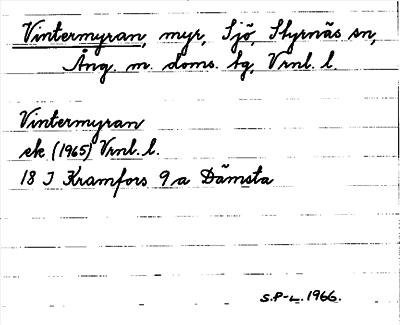 Vintermyran, myr, Sjö, Styrnäs sn,
Ång. m. doms. tg, Vrnl. l.
Vintermyran
ek (1965) Vrnl. l.
18 I Kramfors 9 a Dämsta
S.P-L. 1966.